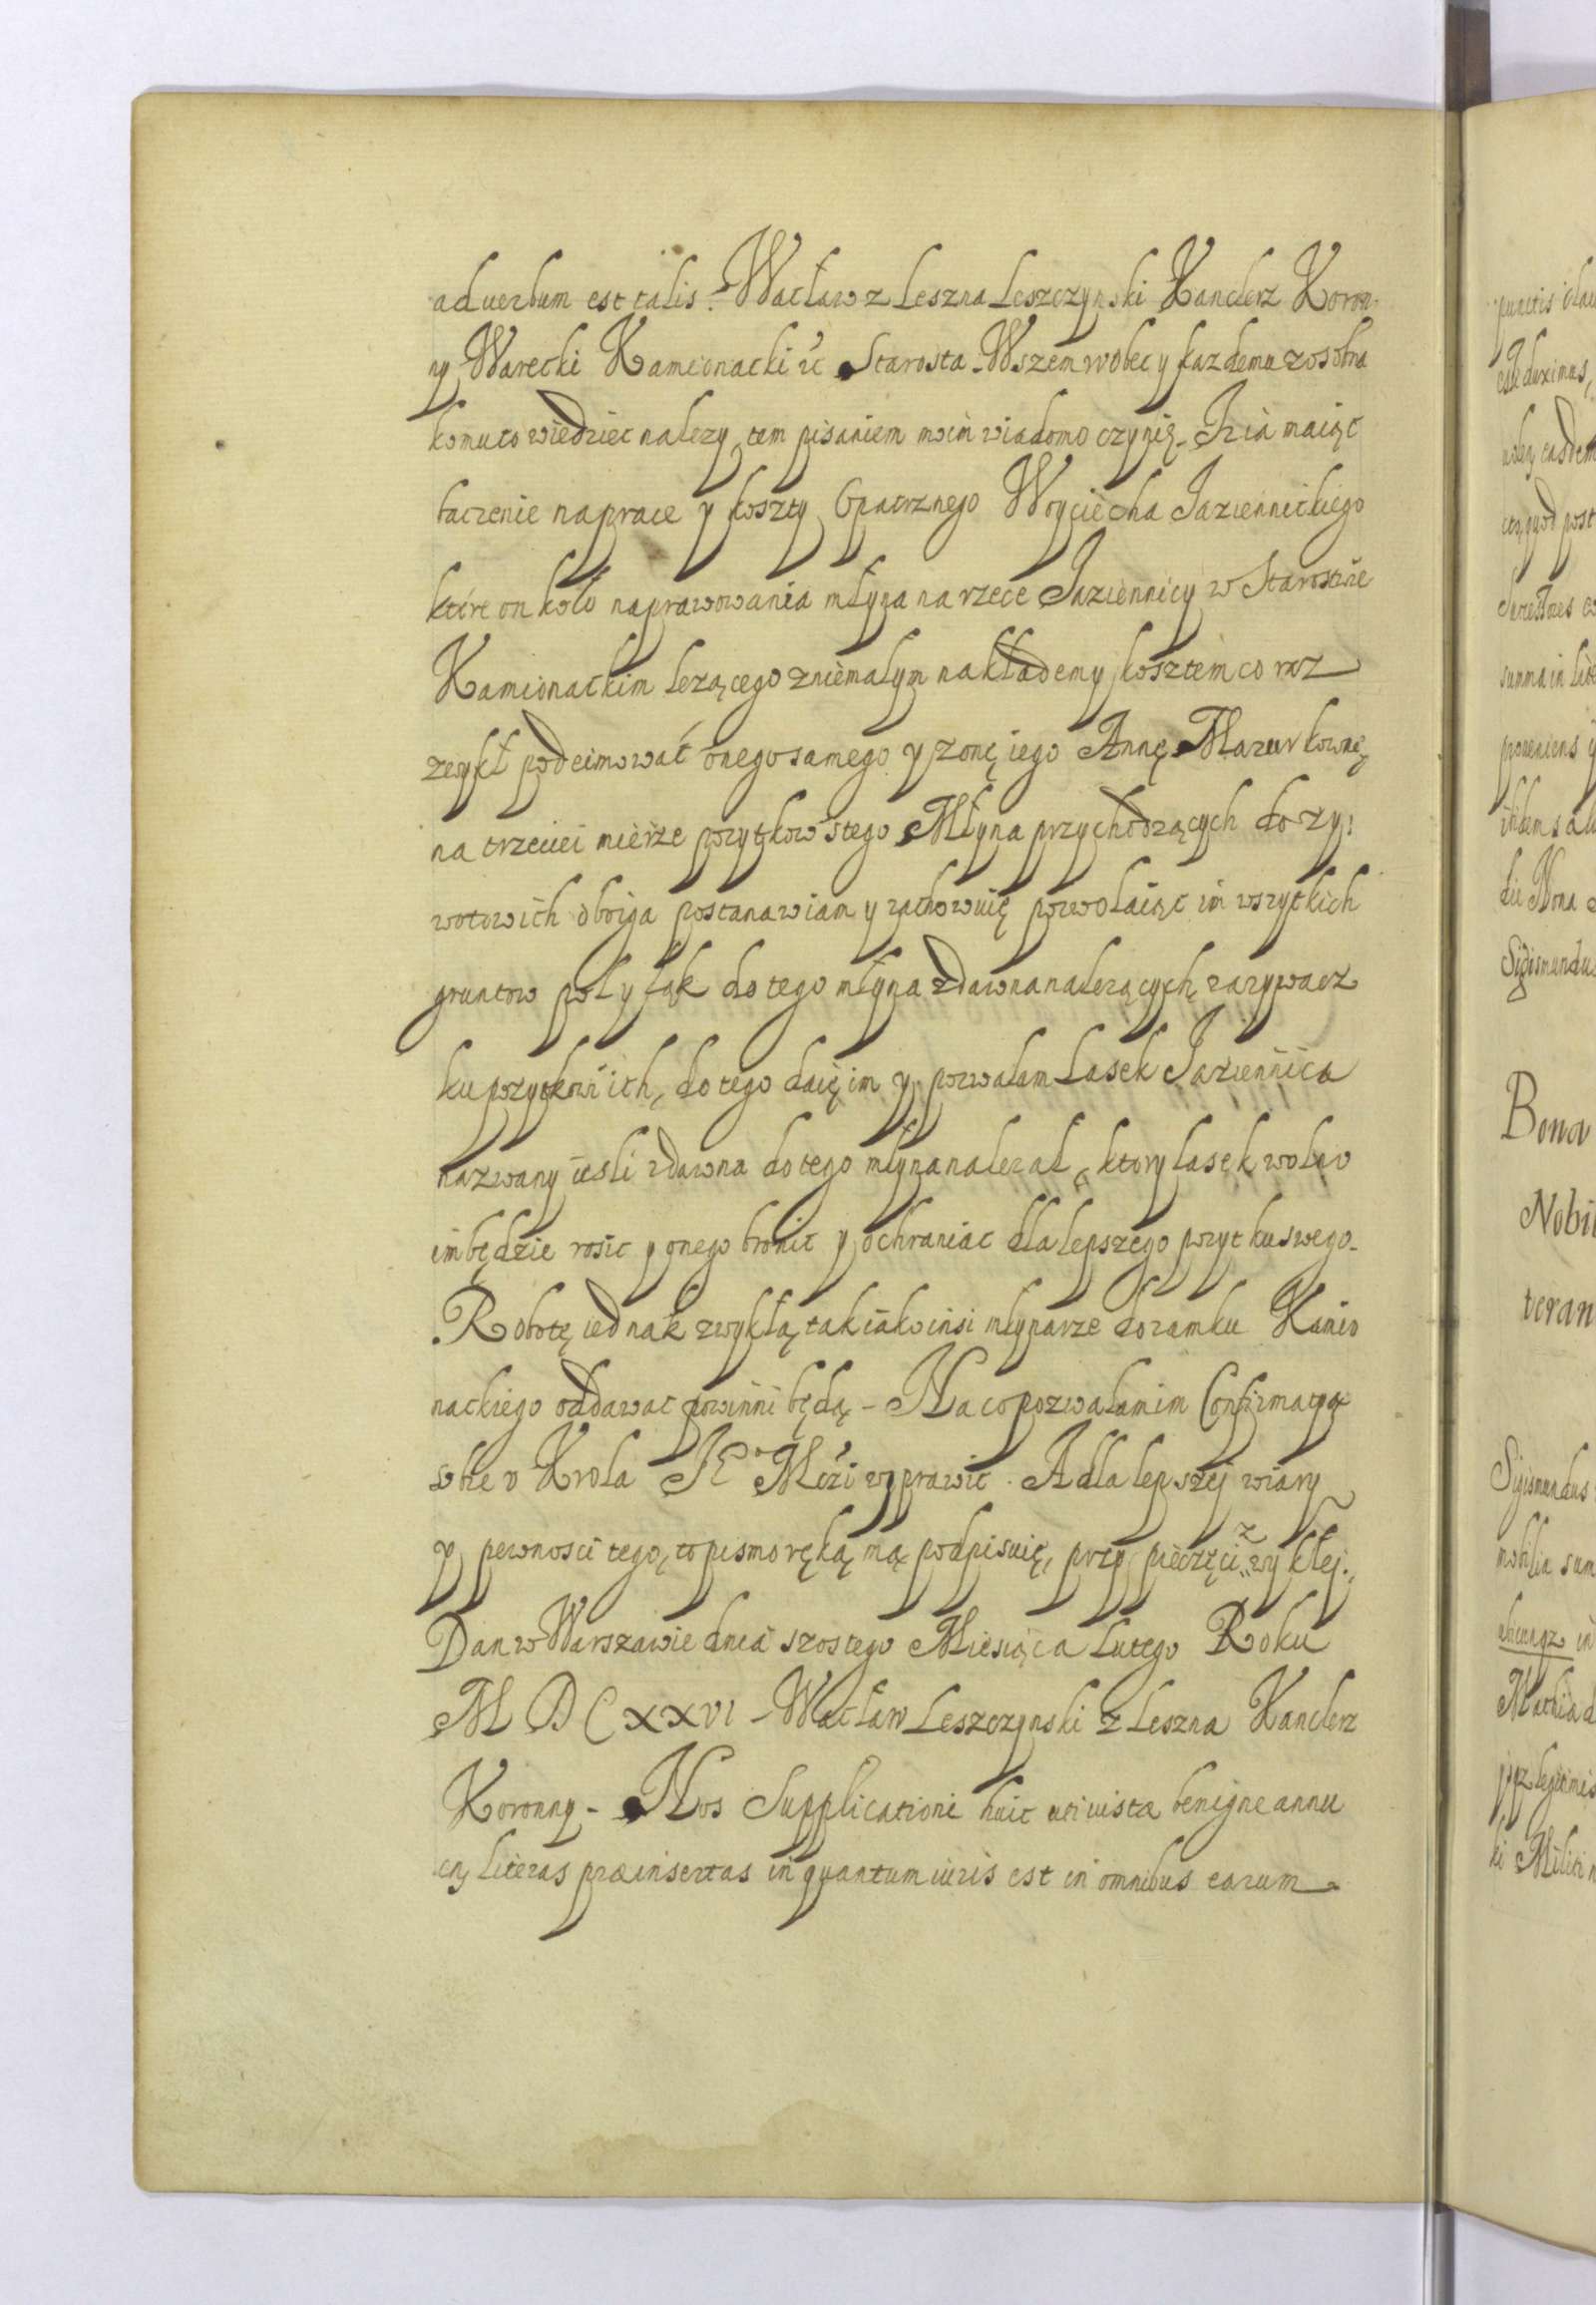 ad verbum est talis. Wacław z Leszna Leszczynski Kanclerz Koron-
ny Warecki Kamionacki &c Starosta. Wszem wobec y kazdemu zosobna
komu to wiedziec nalezy, tem pisaniem moim wiadomo czynię. Iz ia maiąc
baczenie na prace y koszty Opatrznego Woyciecha Jaziennickiego
które on koło naprawowania młyna na rzece Jaziennicy w Starostwie
Kamionackim lezącego zniemałym nakłademy kosztem co raz
zwykł podeimować onego samego y zonę iego Annę Mazurkownę
na trzeciei mierze pozytkow stego Młyna przychodzących do zy:
wotow ich oboyga postanawiam y zachowuię pozwolaiąc im wszytkich
gruntow pol y łąk do tego młyna zdawna nalezących zazywacz
ku pozytkowi ich, do tego daię im y pozwalam Lasek Jaziennica
nazwany iesli zdawna do tego młyna nalezał, ktory lasek wolno
im będzie rosic y onego bronic y ochraniac dla lepszego pozytku swego.
Robotę iednak zwykłą tak iako insi młynarze do zamku Kamio
nackiego oddawac powinni będą - Na co pozwalam im Confirmatią
sobie v Krola JE° Mci wyprawic. A dla lepszej wiary
y pewnosci tego, to pismo ręką mą podpisuię, przy pieczęci zwykłej.
Dan w Warszawie dnia szostego Miesiąca Lutego Roku
M D C XXVI - Wacław Leszczynski z Leszna Kanclerz
Koronny - Nos Supplicationi huic uti iusta benigne annu
en, literas præinsertas in quantum iuris est in omnibus earum
punctis
Bona
Nobil
teran
Sigismundus